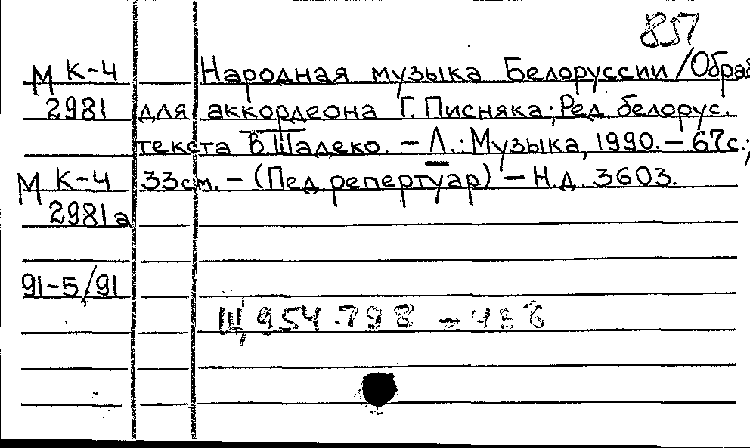 857
М К-4 Народная музыка Белоруссии / Обраб
2981 для аккордеона Г. Писняка; Ред. белорус.
текста В. Шалеко. – Л.: Музыка, 1990. – 67с.;
М К-4 33см. – (Пед. репертуар) – Н.д. 3603.
2981а
91-5/91
Щ954.798